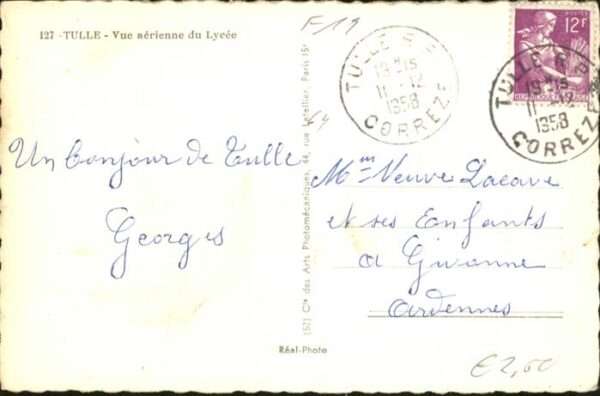 127 - TULLE - Vue aérienne du Lycée
F19
TULLE R P
19H15
11 - 12
1958
CORREZE
12F
TULLE R P
19H15
11 - 12
1958
CORREZE
64
Un bonjour de Tulle
Georges
(52) Cie des Arts Photomécaniques, 44, rue Letellier, Paris 15e
Mme Veuve Lacave
et ses Enfants
a Givonne
Ardennes
Réel-Photo
€2,50